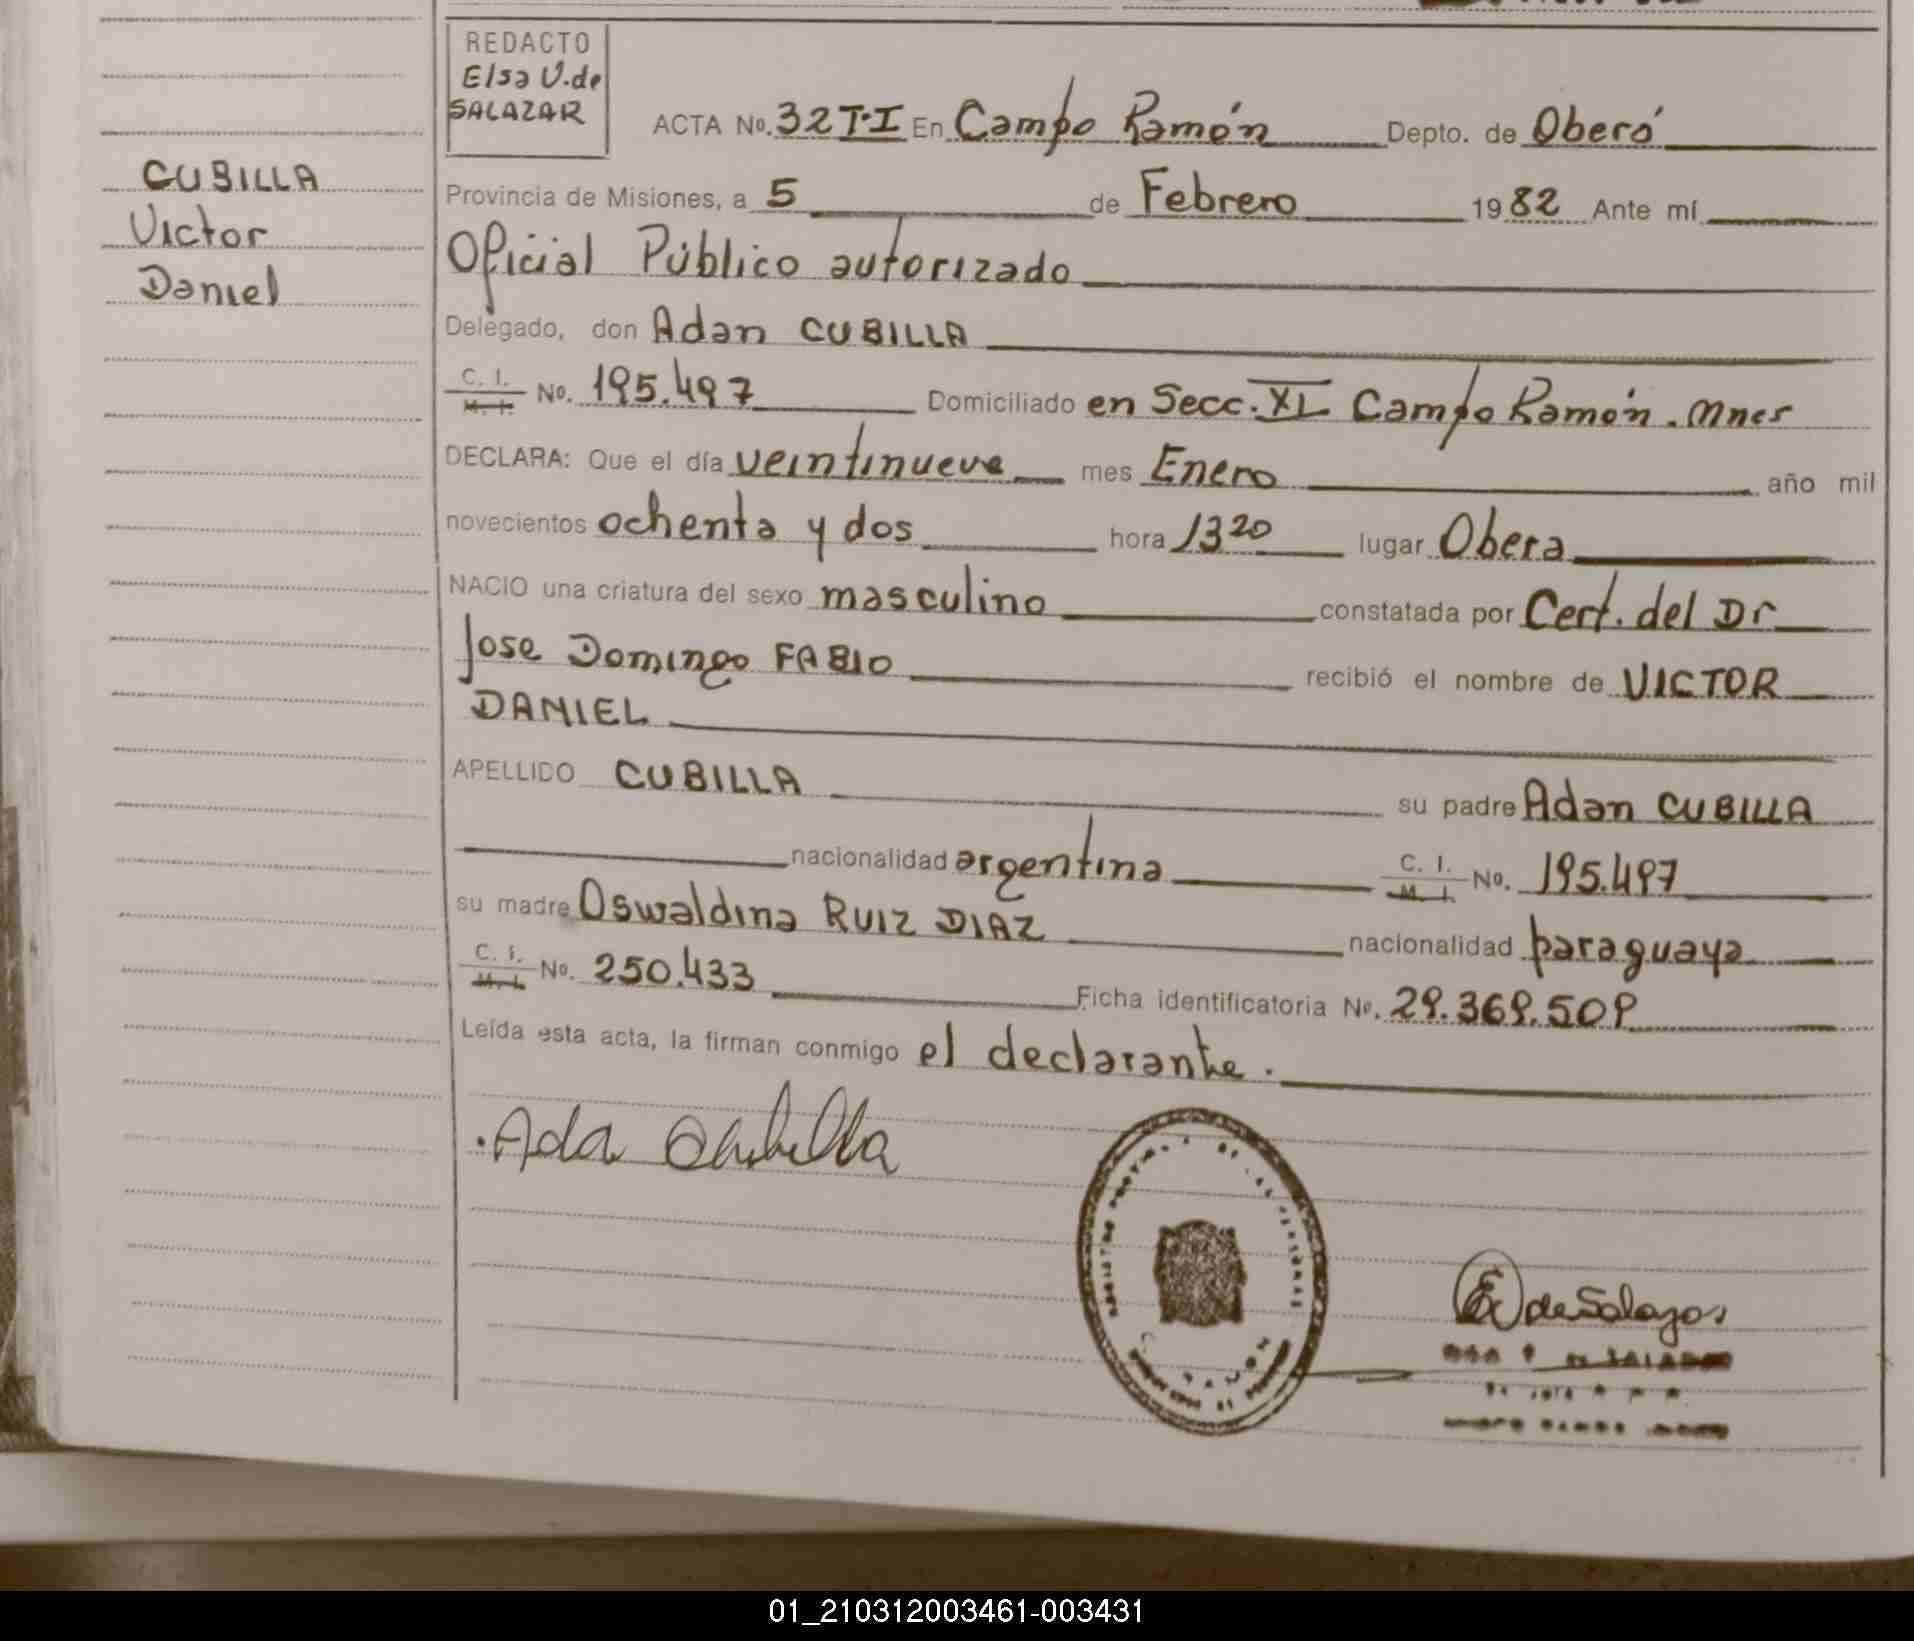 REDACTO
Elsa V. de
SALAZAR
ACTA No. 32 T·I En Campo Ramón Depto. de Oberá
CUBILLA
Victor
Daniel
Provincia de Misiones, a 5 de Febrero 1982 Ante mí
Oficial Público autorizado
Delegado, don Adan CUBILLA
C. I. M. I. No. 195.497 Domiciliado en Secc. XI Campo Ramón. Mnes
DECLARA: Que el día veintinueve mes Enero año mil
novecientos ochenta y dos hora 13 20 lugar Obera
NACIO una criatura del sexo masculino constatada por Cert. del Dr
Jose Domingo FABIO recibió el nombre de VICTOR
DANIEL
APELLIDO CUBILLA su padre Adan CUBILLA
nacionalidad argentina C. I. M. I. No. 195.497
su madre Oswaldina RUIZ DIAZ nacionalidad paraguaya
C. I. M. I. No. 250.433 Ficha identificatoria No. 29.369.509
Leída esta acta, la firman conmigo el declarante.
Ada Cubilla
E de Salazar
01_210312003461-003431